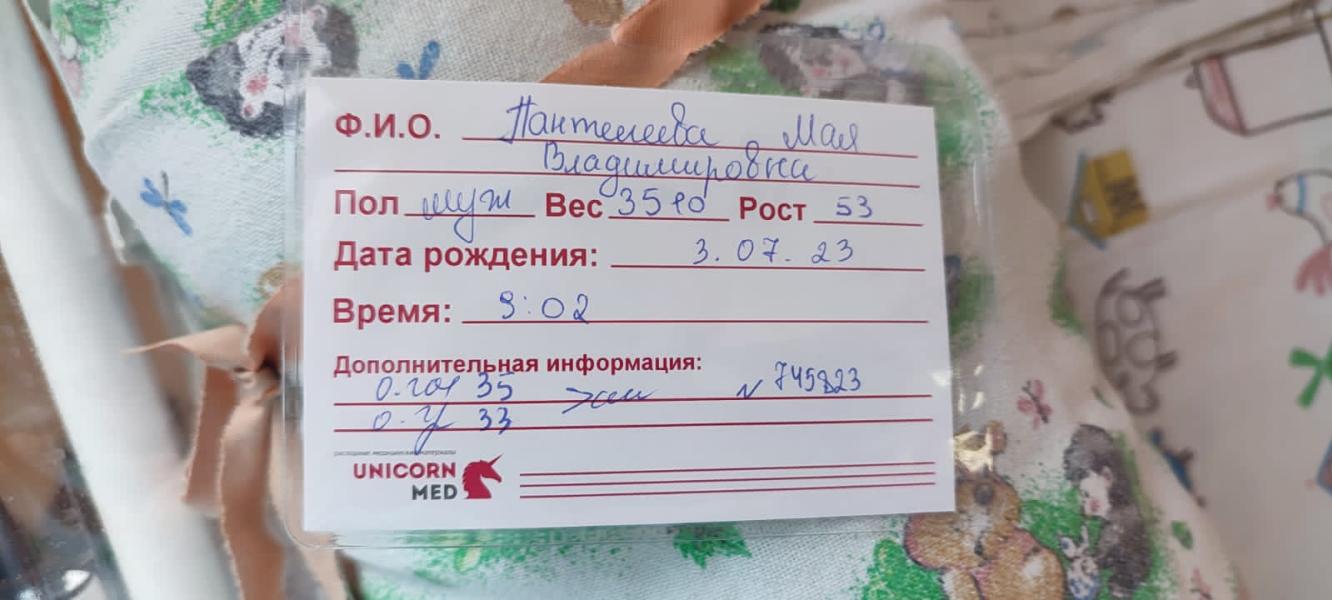 Ф.И.О. Пантелеева Мая
Владимировна
Пол муж Вес 3510 Рост 53
Дата рождения: 3.07.23
Время: 9:02
Дополнительная информация:
о.гол 35 см N 745823
о.г 33
расходные медицинские материалы
UNICORN
MED